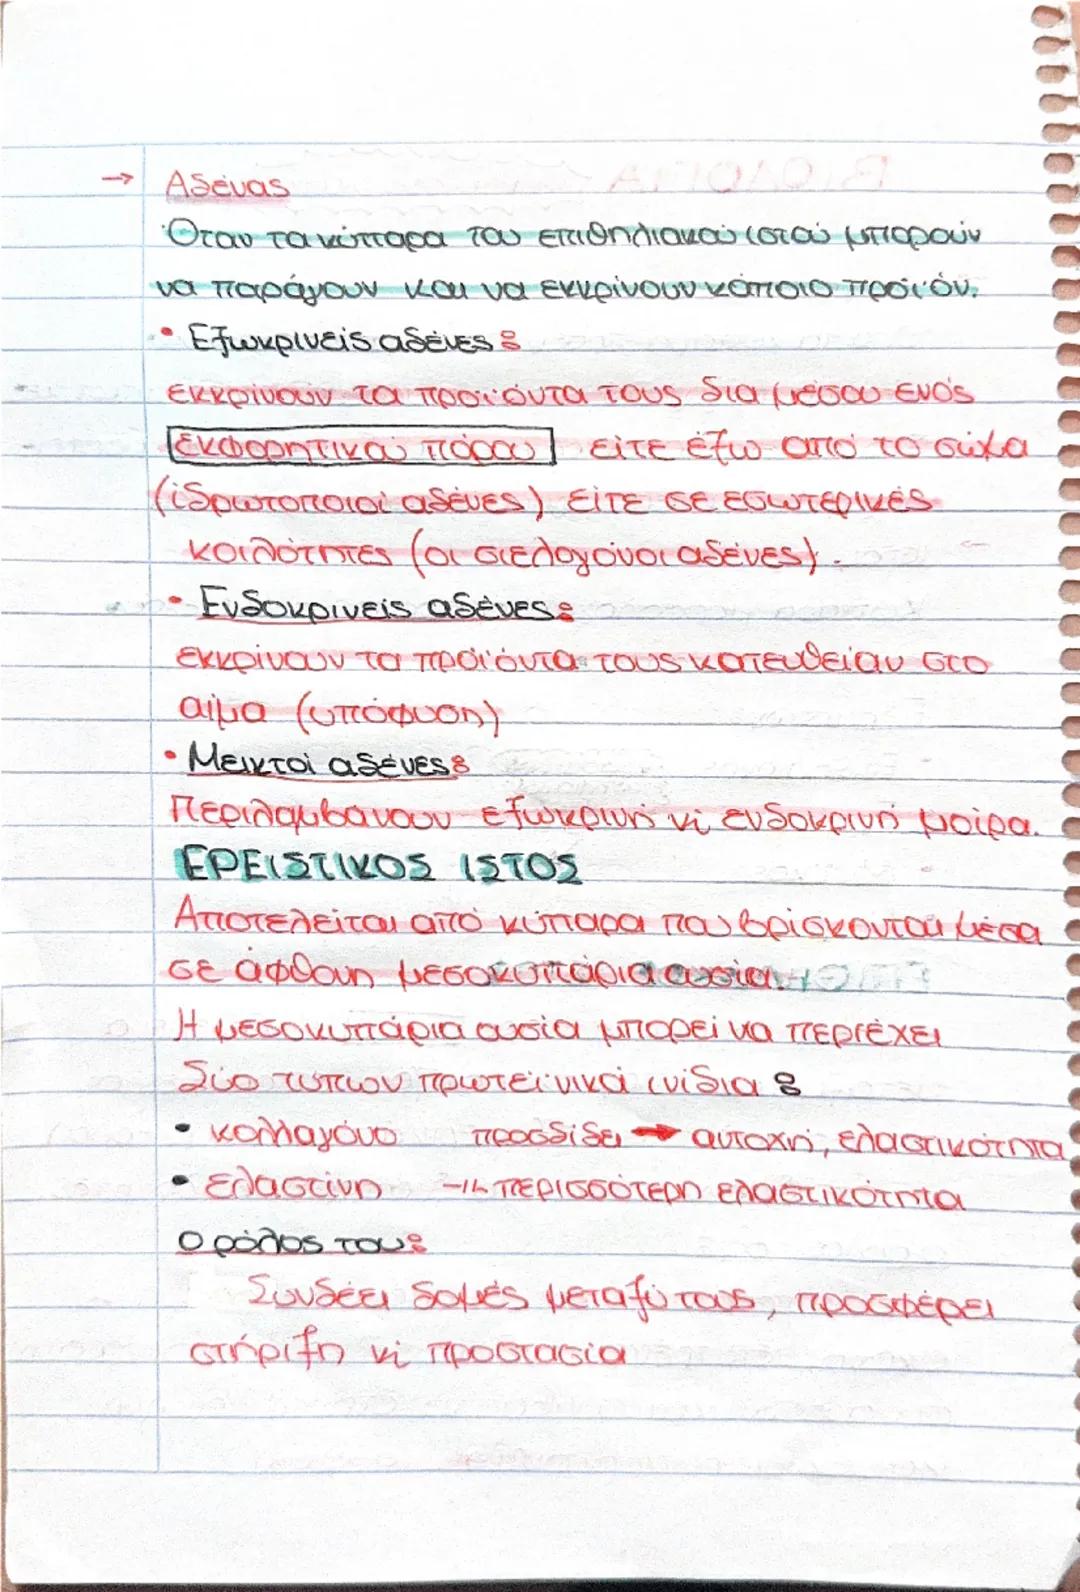 → Αδένας
Όταν τα κύτταρα του επιθηλιακού ιστού μπορούν
να παράγουν και να εκκρίνουν κάποιο προϊόν.
• Εξωκρινείς αδένες:
εκκρίνουν τα προϊόντα τους δια μέσου ενός
εκφορητικού πόρου είτε έξω από το σώμα
(ιδρωτοποιοί αδένες) είτε σε εσωτερικές
κοιλότητες (οι σιελογόνοι αδένες).
• Ενδοκρινείς αδένες:
εκκρίνουν τα προϊόντα τους κατευθείαν στο
αίμα (υπόφυση)
• Μεικτοί αδένες:
Περιλαμβάνουν εξωκρινή κι ενδοκρινή μοίρα.
ΕΡΕΙΣΤΙΚΟΣ ΙΣΤΟΣ
Αποτελείται από κύτταρα που βρίσκονται μέσα
σε άφθονη μεσοκυττάρια ουσία.
Η μεσοκυττάρια ουσία μπορεί να περιέχει
δύο τύπων πρωτεϊνικά ινίδια:
• κολλαγόνο προσδίδει → αντοχή, ελαστικότητα
• ελαστίνη -||- περισσότερη ελαστικότητα
Ο ρόλος του:
Συνδέει δομές μεταξύ τους, προσφέρει
στήριξη κι προστασία